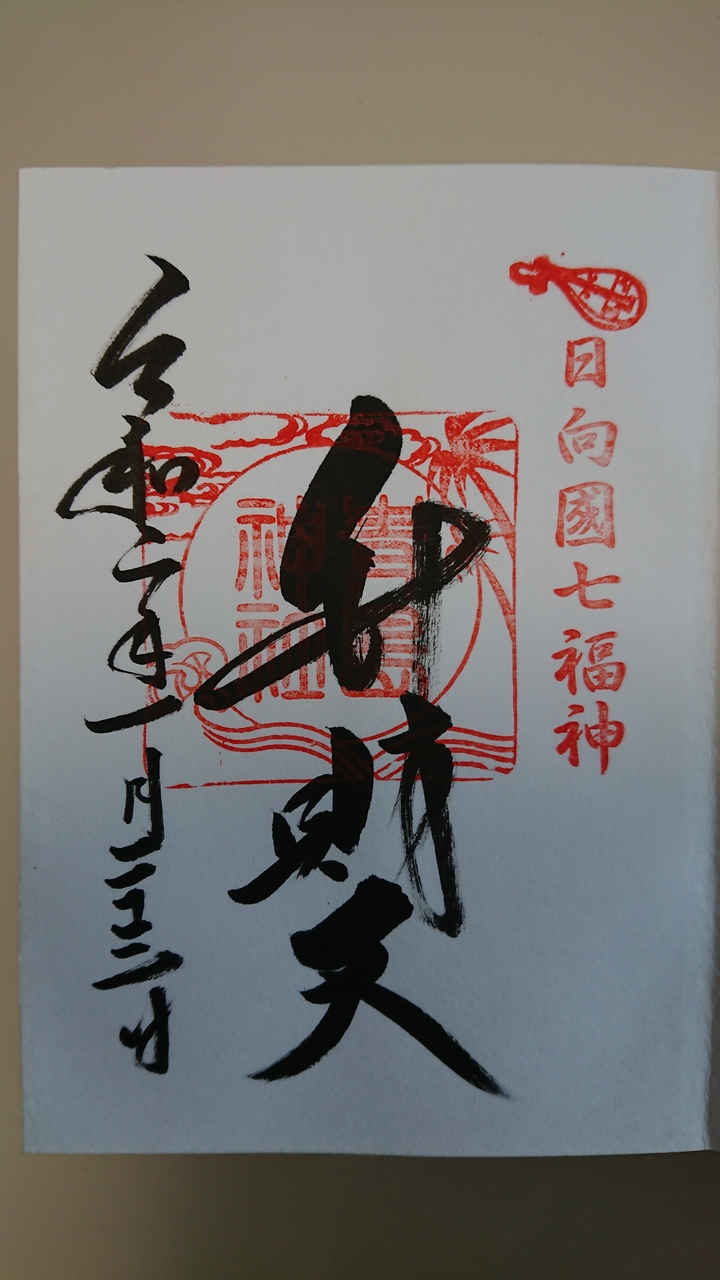 日向國七福神
弁財天
青島
神社
令和二年一月二十二日